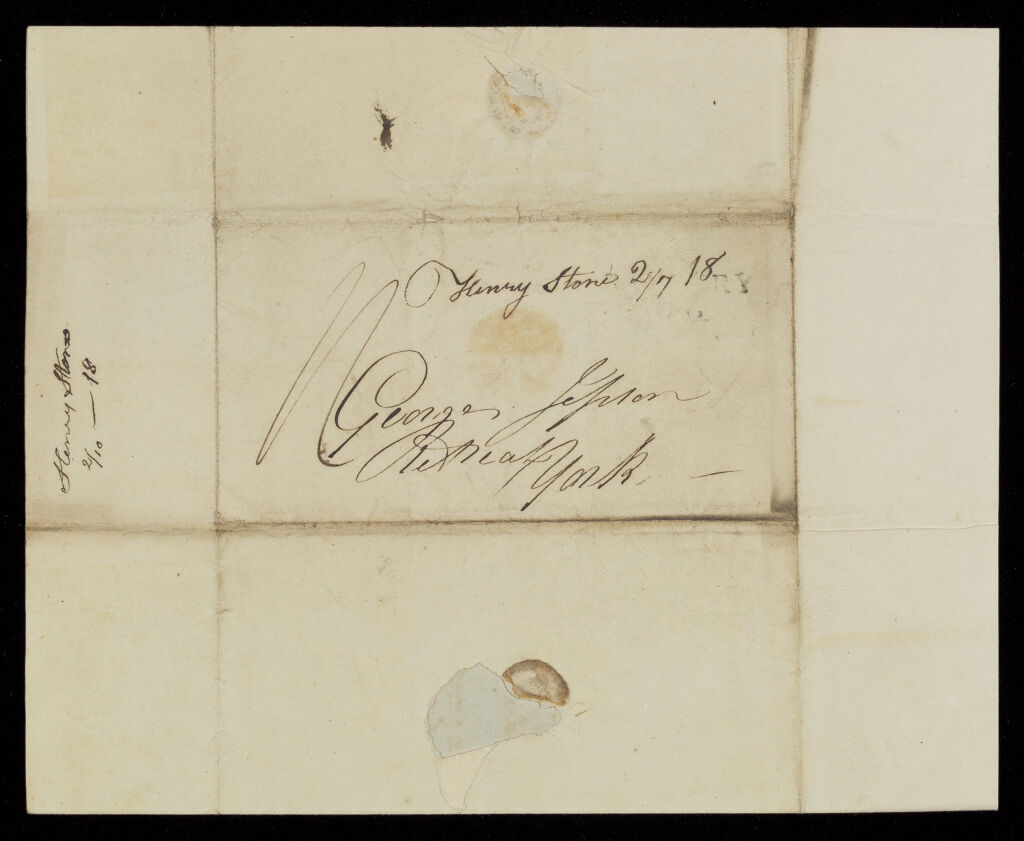 Henry Stone 2/7 18
George Jepson
Retreat York
Henry Stone
2/10 — 18